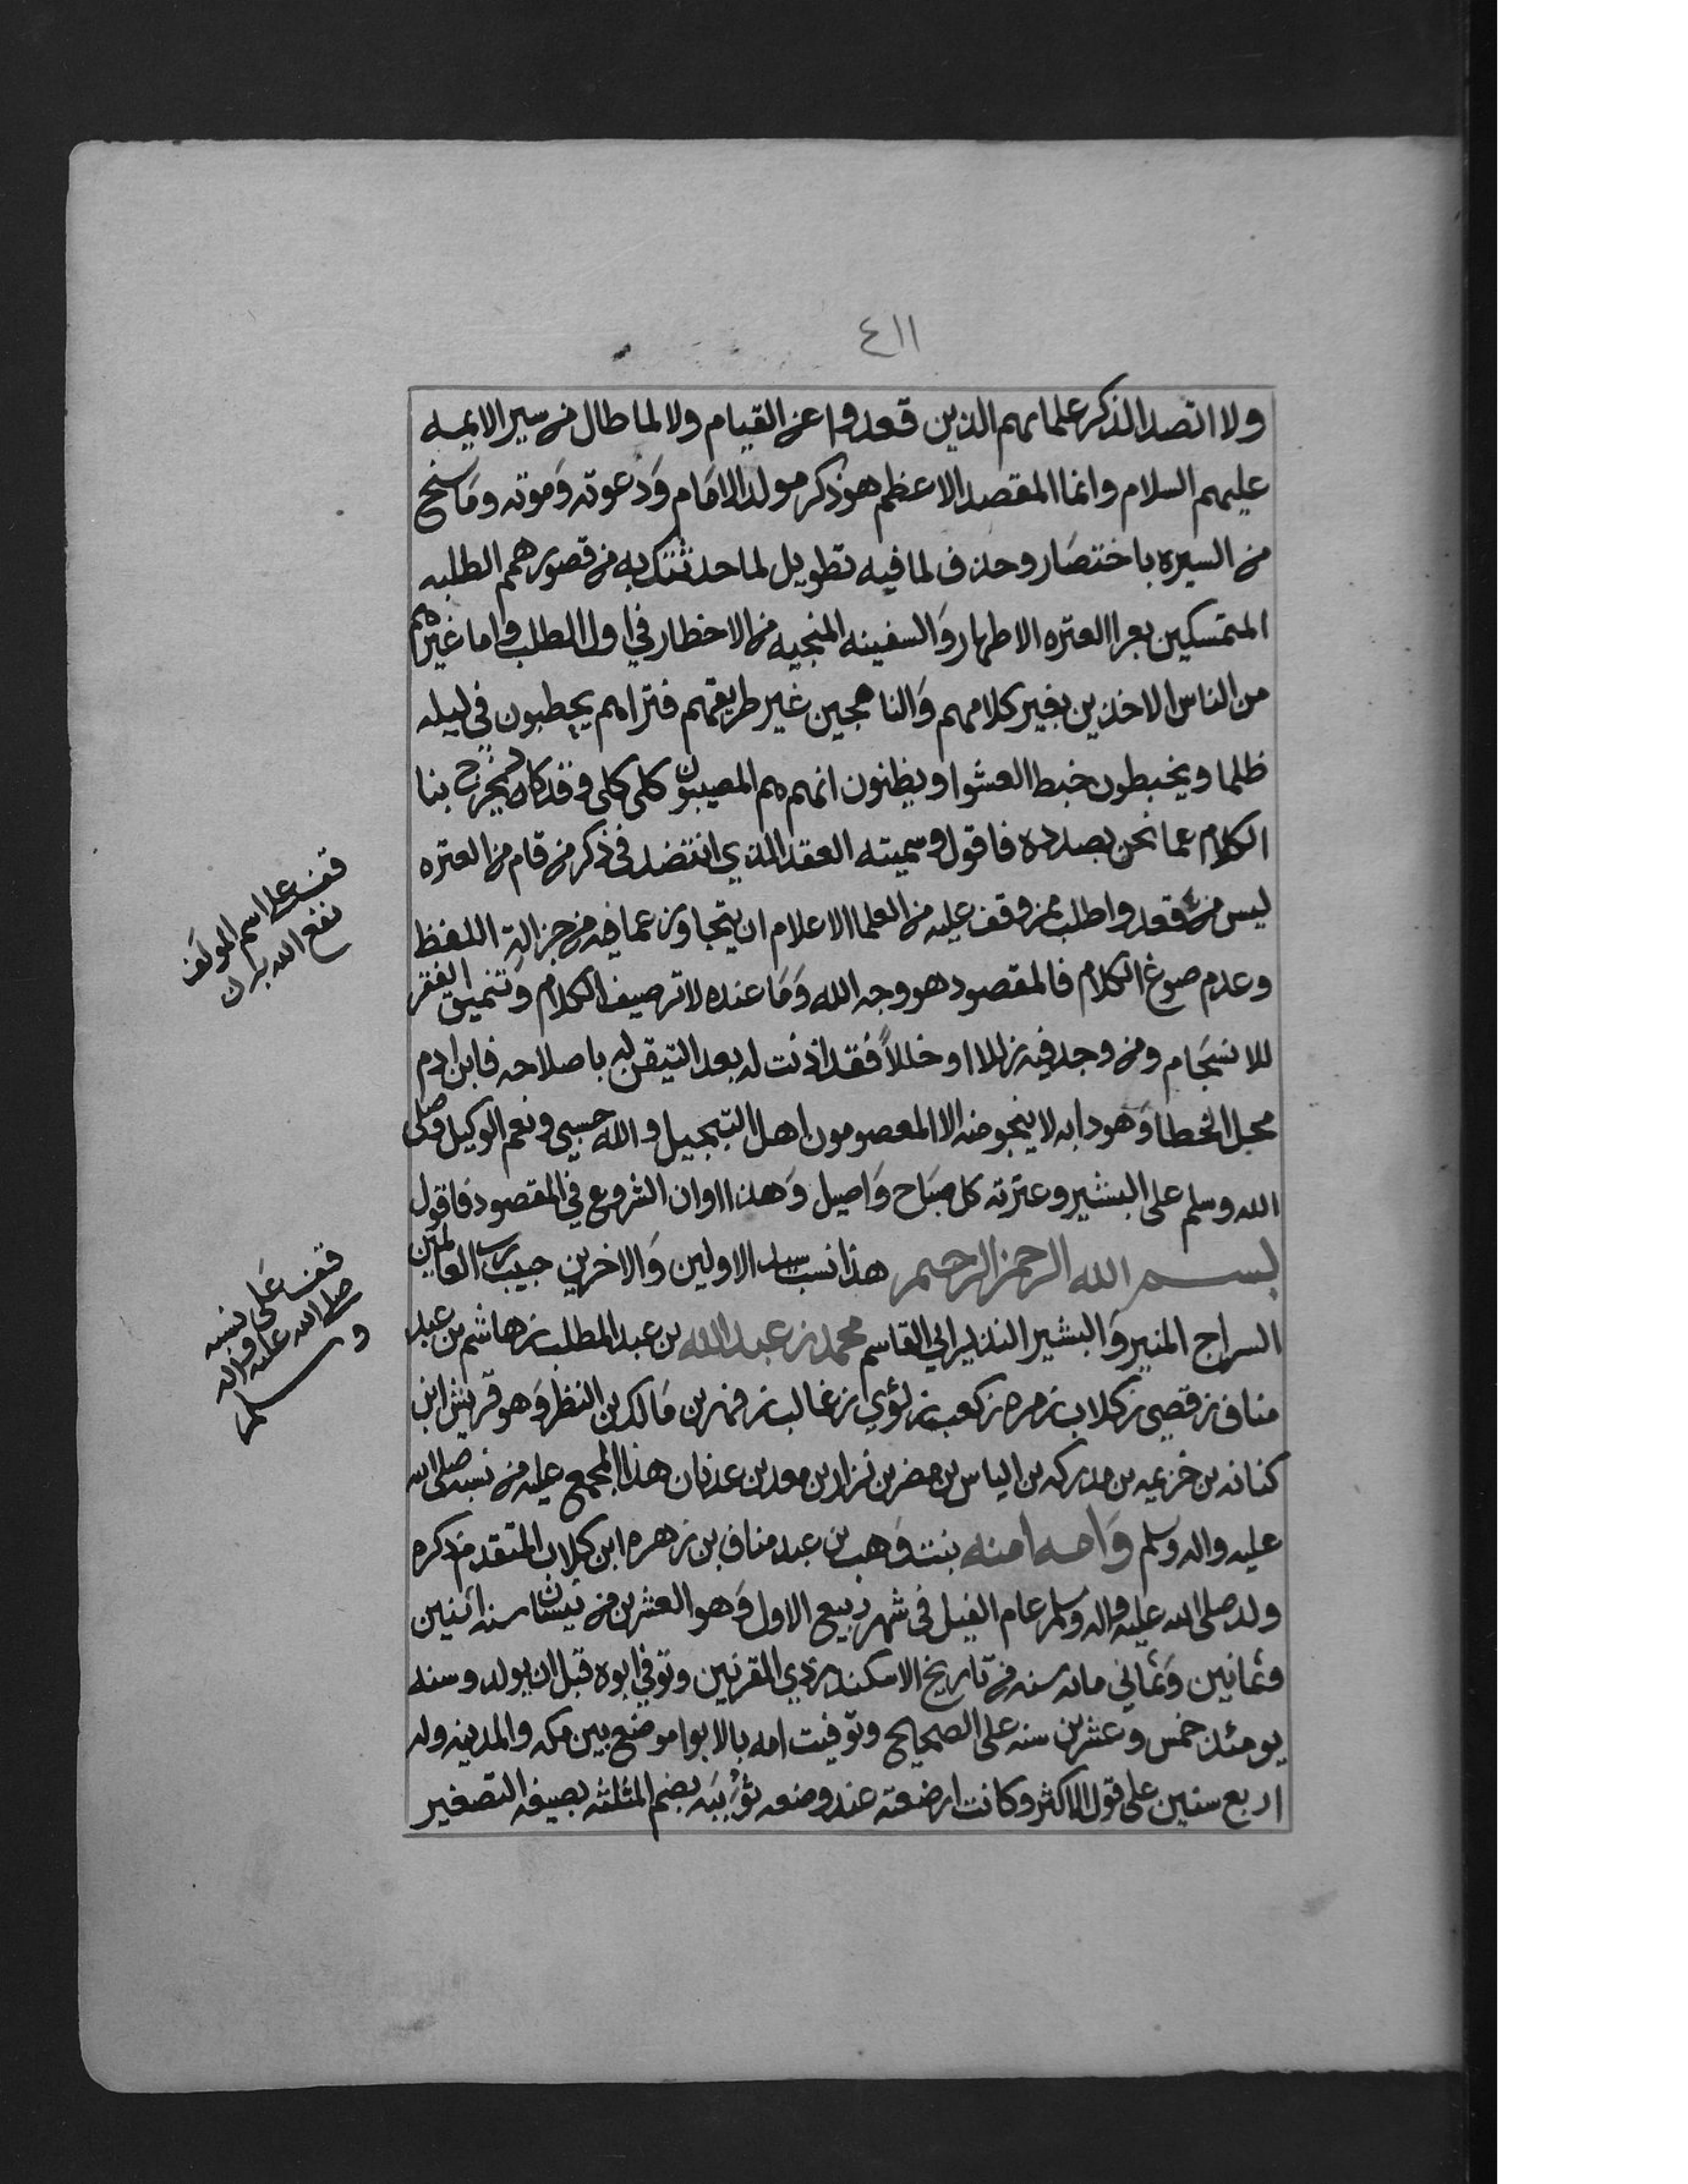 ٤١١
ولا اتصد الذكر علمايهم الذين قعدوا عن القيام ولا لما طال من سير الايمه
عليهم السلام وانما المقصد الاعظم هو ذكر مولد الامام وَدَعوته وَموته ومَا سنح
من السيره باختصَار وحذف لما فيه تطويل لما حدثتك به من قصور همم الطلبه
المتمسكين بعرا العتره الاطهار وَالسفينه المنجيه من الاخطار في اول الطلب واما غيرهم
من الناس الاخذين بغير كلامهم وَالناهجين غير طريقهم فتراهم يحطبون في ليله
ظلما ويخبطون خبط العشوا ويظنون انهم هم المصيبون كلى كلى وقد كاد يخرج بنا
الكلام عما نحن بصدده فاقول وسميته العقد الذي انتضد في ذكر من قام من العتره
ليس من قعد واطلب ممن وقف عليه من العلما الاعلام ان يتجاوز عما فيه من جزالة اللفظ
وعدم صوغ الكلام فالمقصود هو وجه الله وَمَا عنده لا ترصيف الكلام وَتنميق الفقر
للانسجَام ومن وجد فيه زللا او خللاً فقد اذنت له بعد التيقن له باصلاحه فابن ادم
محل الخطا وَهو دابه لا ينجو منه الا المعصومون اهل التبجيل والله حسبي ونعم الوكيل وصلى
الله وسلم على البشير وعترته كل صبَاح وَاصيل وَهذا اوان الشروع في المقصود فاقول
بسم الله الرحمن الرحيم هذا نسب سيد الاولين وَالاخرين حبيب رب العالمين
السراج المنير وَالبشير النذير ابي القاسم محمد بن عبد الله بن عبد المطلب بن هاشم بن عبد
مناف بن قصي بن كلاب بن مره بن كعب بن لؤي بن غالب بن فهر بن مَالك بن النظر وَهو قريش ابن
كنانه بن خزيمه بن مدركه بن الياس بن مضر بن نزار بن معد بن عدنان هذا المجمع عليه من نسبه صلى الله
عليه واله وسلم وَامه امنه بنت وَهب بن عبد مناف بن زهره ابن كلاب المتقدم ذكره
ولد صلى الله عليه واله وسلم عام الفيل في شهر ربيع الاول وَهو العشرين من نيسان سنه اثنين
وثمانين وَثماني مائه سنه من تاريخ الاسكندر ذي القرنين وتوفي ابوه قبل ان يولد وسنه
يومئذ خمس وعشرين سنه على الصحيح وتوفيت امه بالابوا موضع بين مكه والمدينه وله
اربع سنين على قول الاكثر وكانت ارضعته عند وضعه ثُوَيبَه بضم المثلثه بصيغه التصغير
قف على اسم المولف
نفع الله بذلك
قف عَلى نسبه
صلى الله عليه واله
وسلم